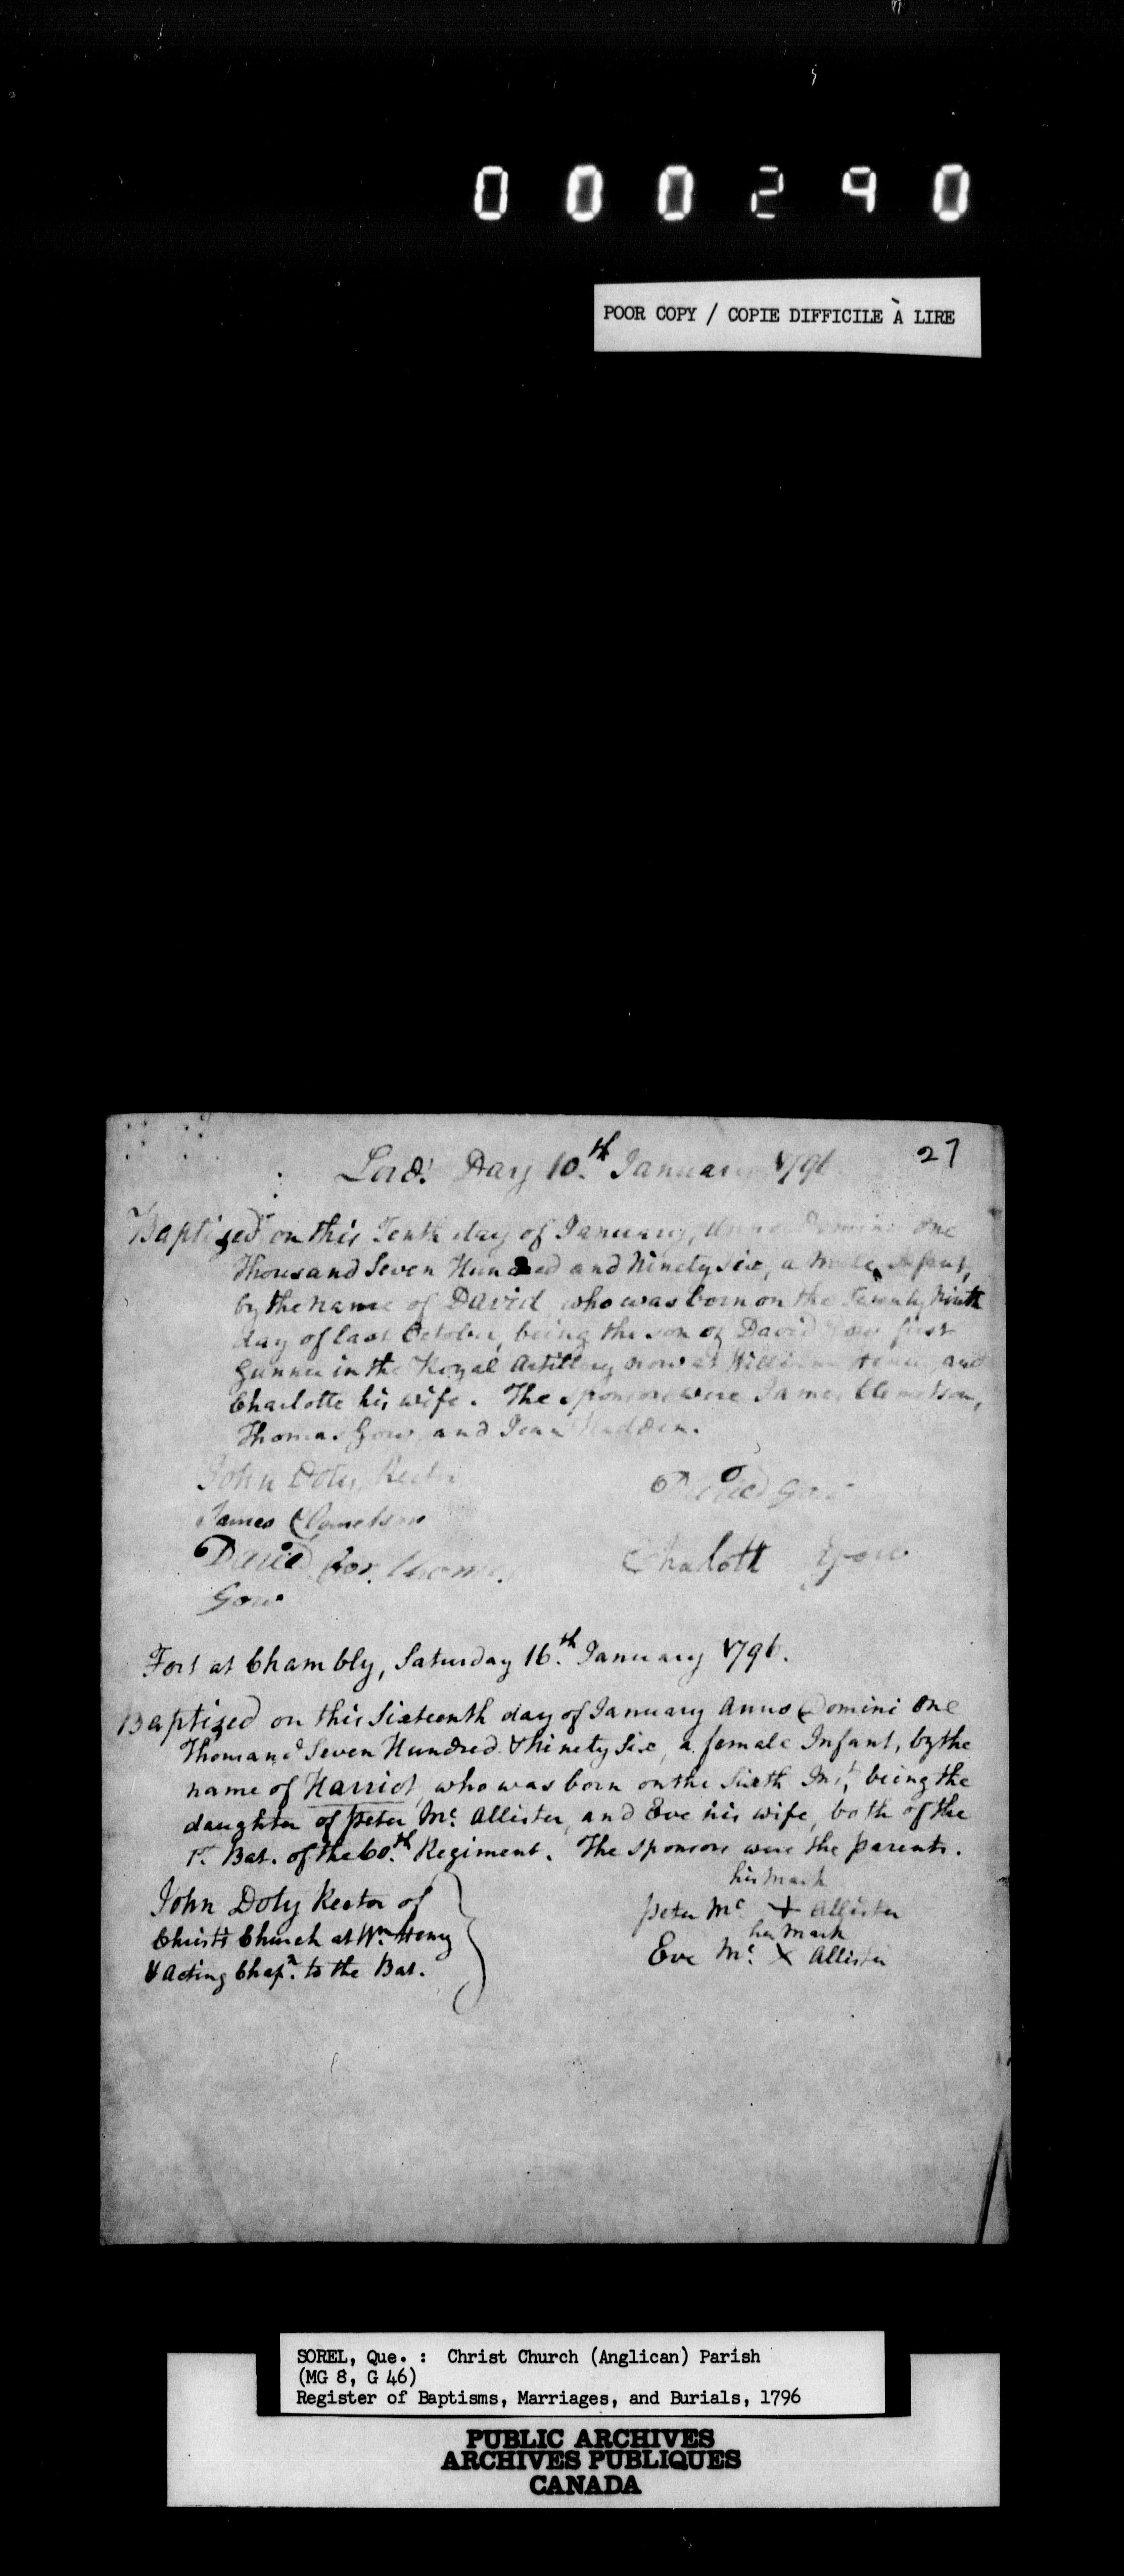 000290
POOR COPY / COPIE DIFFICILE À LIRE
27
Lord's Day 10.th January 1796
Baptized on this Tenth day of January, Anno Domini One
Thousand Seven Hundred and Ninety Six, a Male Infant,
by the name of David who was born on the Twenty Ninth
day of last October, being the son of David Gow first
Gunner in the Royal Artillery now at William Henry and
Charlotte his wife. The sponsors were James Clemetson,
Thomas Gow and Jean Madden.
John Doty Rector
David Gow
James Clametson
David for Thomas
Charlott Gow
Gow
Fort at Chambly, Saturday 16.th January 1796.
Baptized on this Sixteenth day of January Anno Domini One
Thousand Seven Hundred & Ninety Six, a female Infant, by the
name of Harriot, who was born on the Sixth Inst, being the
daughter of Peter Mc Allister, and Eve his wife, both of the
1st. Bat. of the 60.th Regiment. The sponsors were the parents.
his mark
John Doty Rector of
Peter Mc + Allister
Christ's Church at Wm Henry
her mark
Eve Mc X Allister
& Acting Chapn. to the Bat.
SOREL, Que. : Christ Church (Anglican) Parish
(MG 8, G 46)
Register of Baptisms, Marriages, and Burials, 1796
PUBLIC ARCHIVES
ARCHIVES PUBLIQUES
CANADA